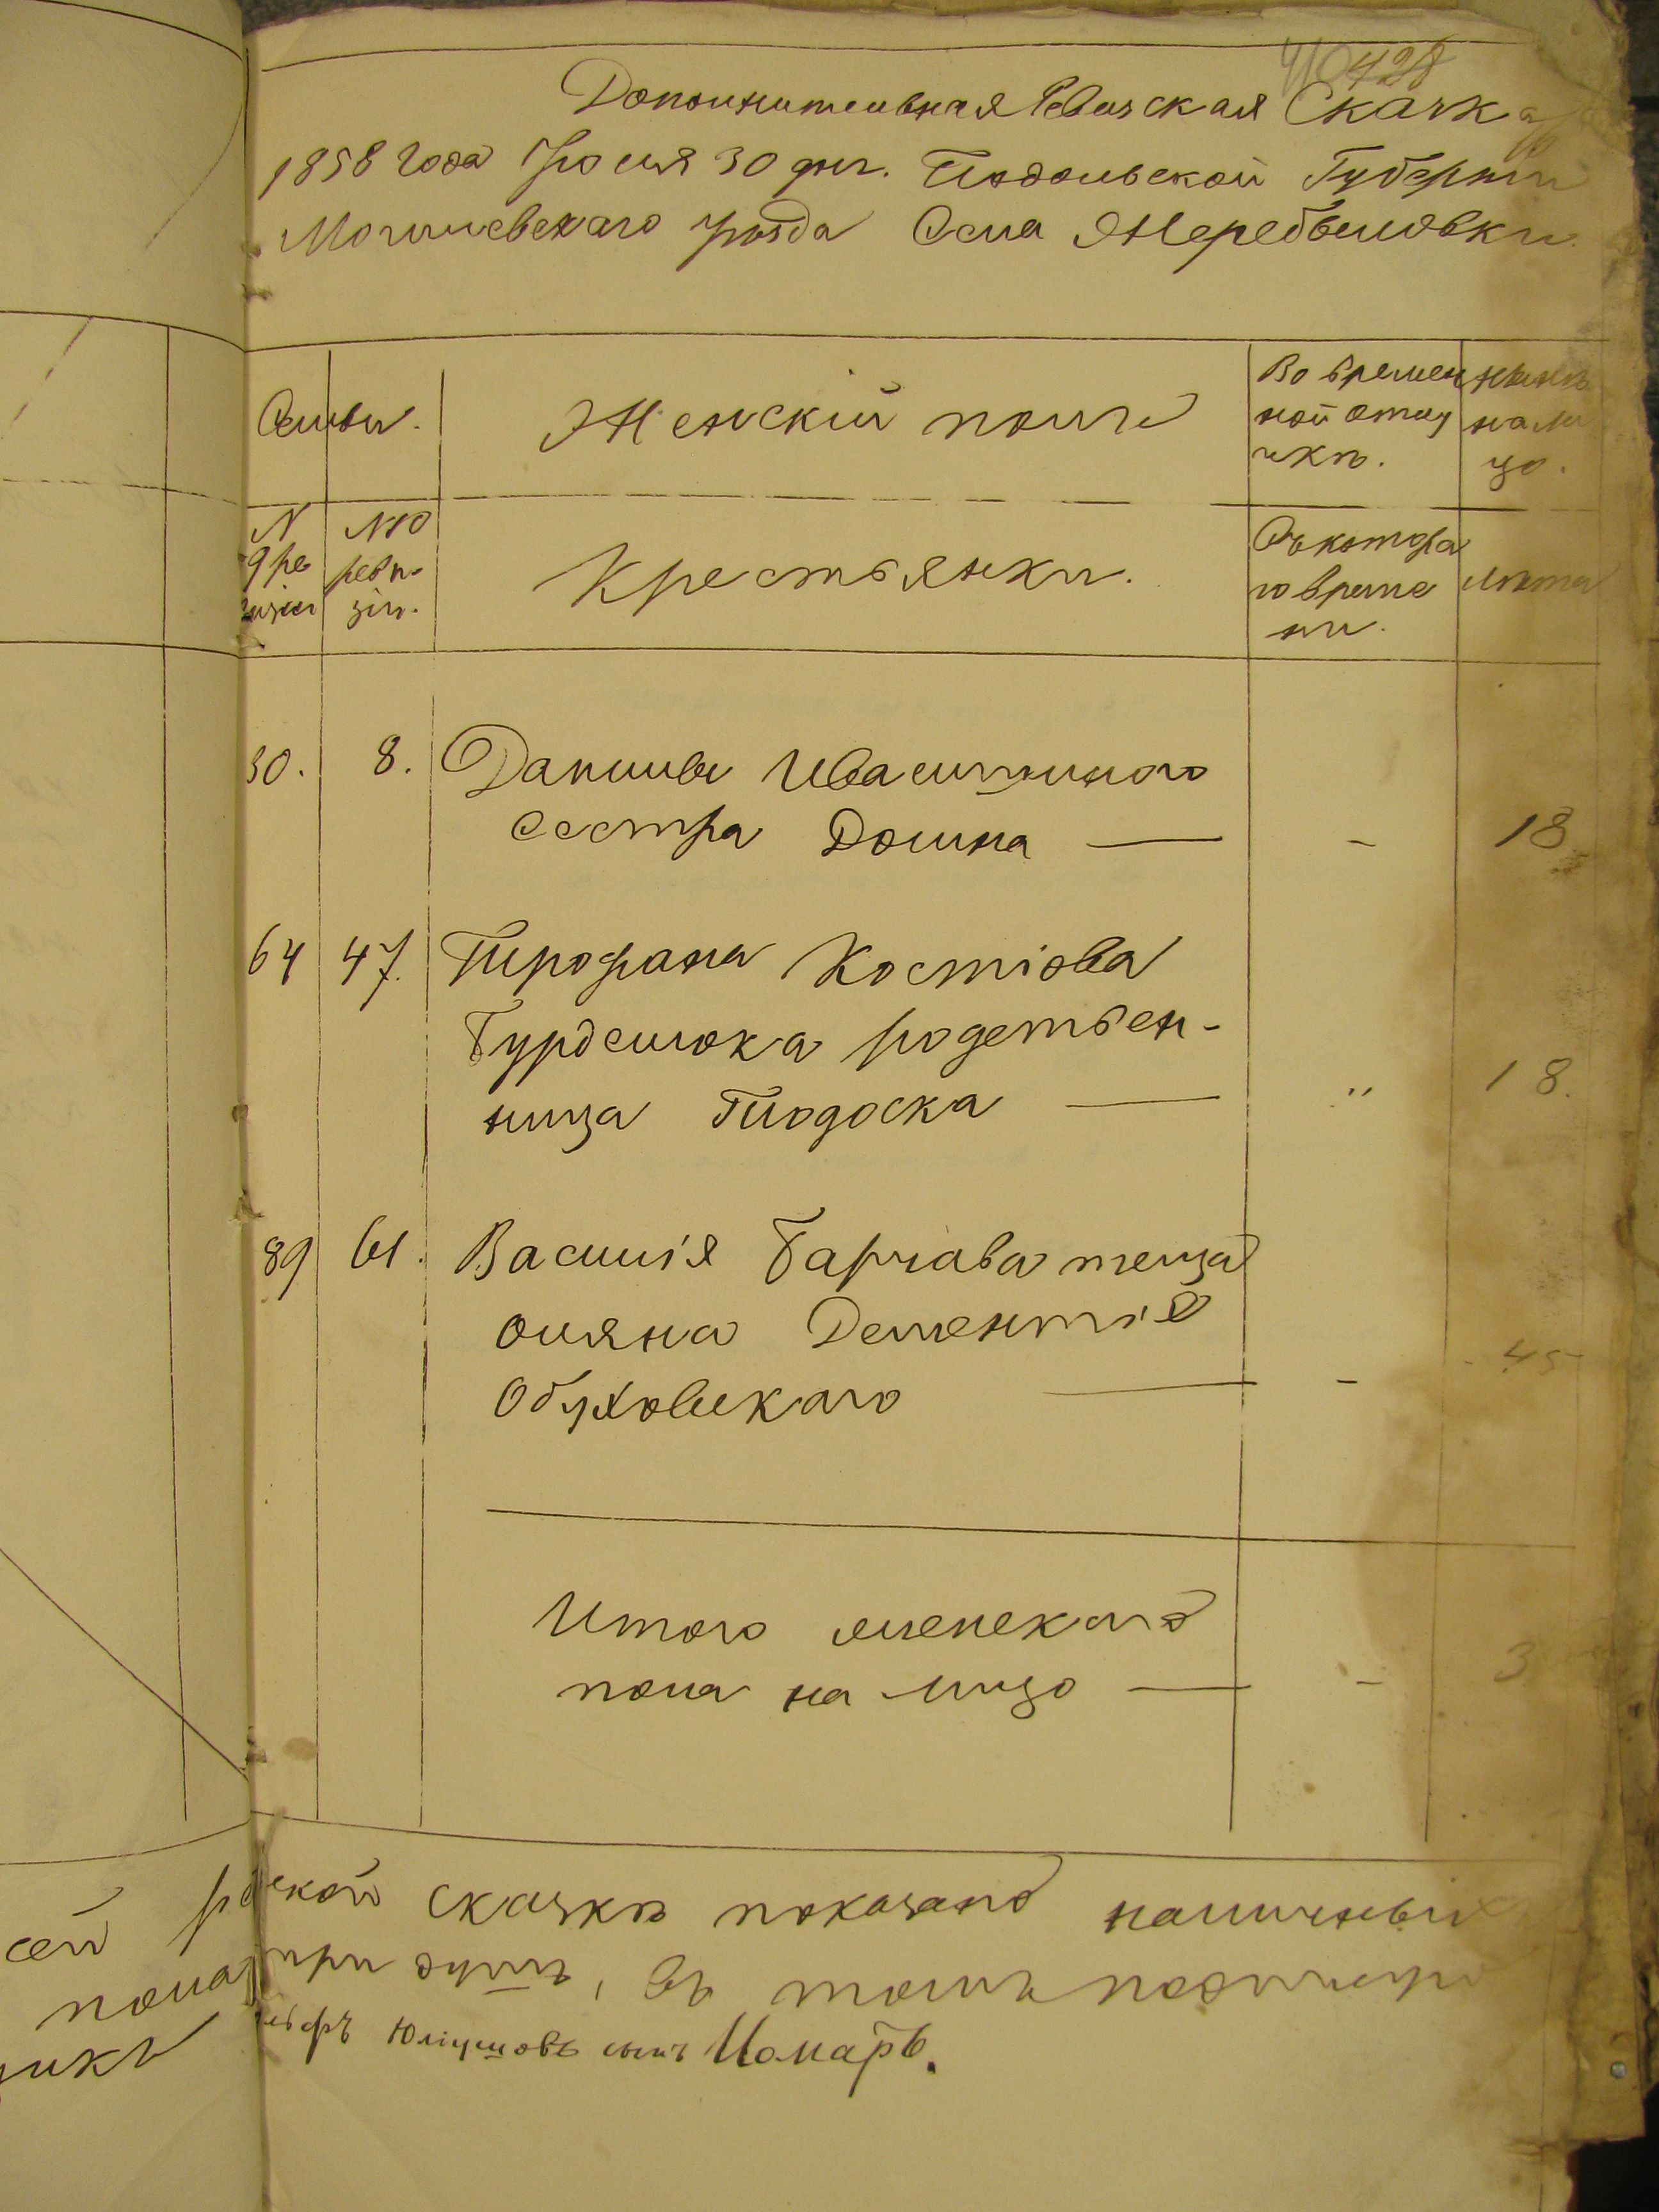 428
Дополнительная Ревизская Сказка
1858 Года Iюля 30 дня. Подольской Губернiи
Могилевскаго уѣзда Села Жеребиловки
Семьи.
Женскiй полъ
Во времен
ной отлу
чкѣ.
нынѣ
на ли
цо.
N
9 ре
визiи
N 10
реви
зiи.
Крестьянки.
Съ котора
го време
ни.
Лѣта
30. 8. Данилы Ивасишиного
сестра Домна — - 18
64 47. Трофана Костiова
Бурделюка родствен-
ница Тиодоска — " 18.
89 61. Василiя Барчава теща
Оляна Дементiя
Обуховскаго — - 45
Итого женскаго
пола на лицо — - 3
сей ре ской сказкѣ показано наличныхъ
пола три душѣ, въ томъ
Юлiушовъ сынъ Йомаръ.